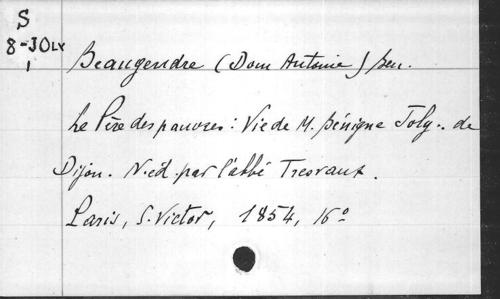 S
8-JOLY
1
Beaugendre (Dom Antoine) ben.
Le Père des pauvres: Vie de M. Bénigne Joly.. de
Dijon. N. éd. par l'abbé Tresvaux.
Paris, S. Victor, 1854, 16°